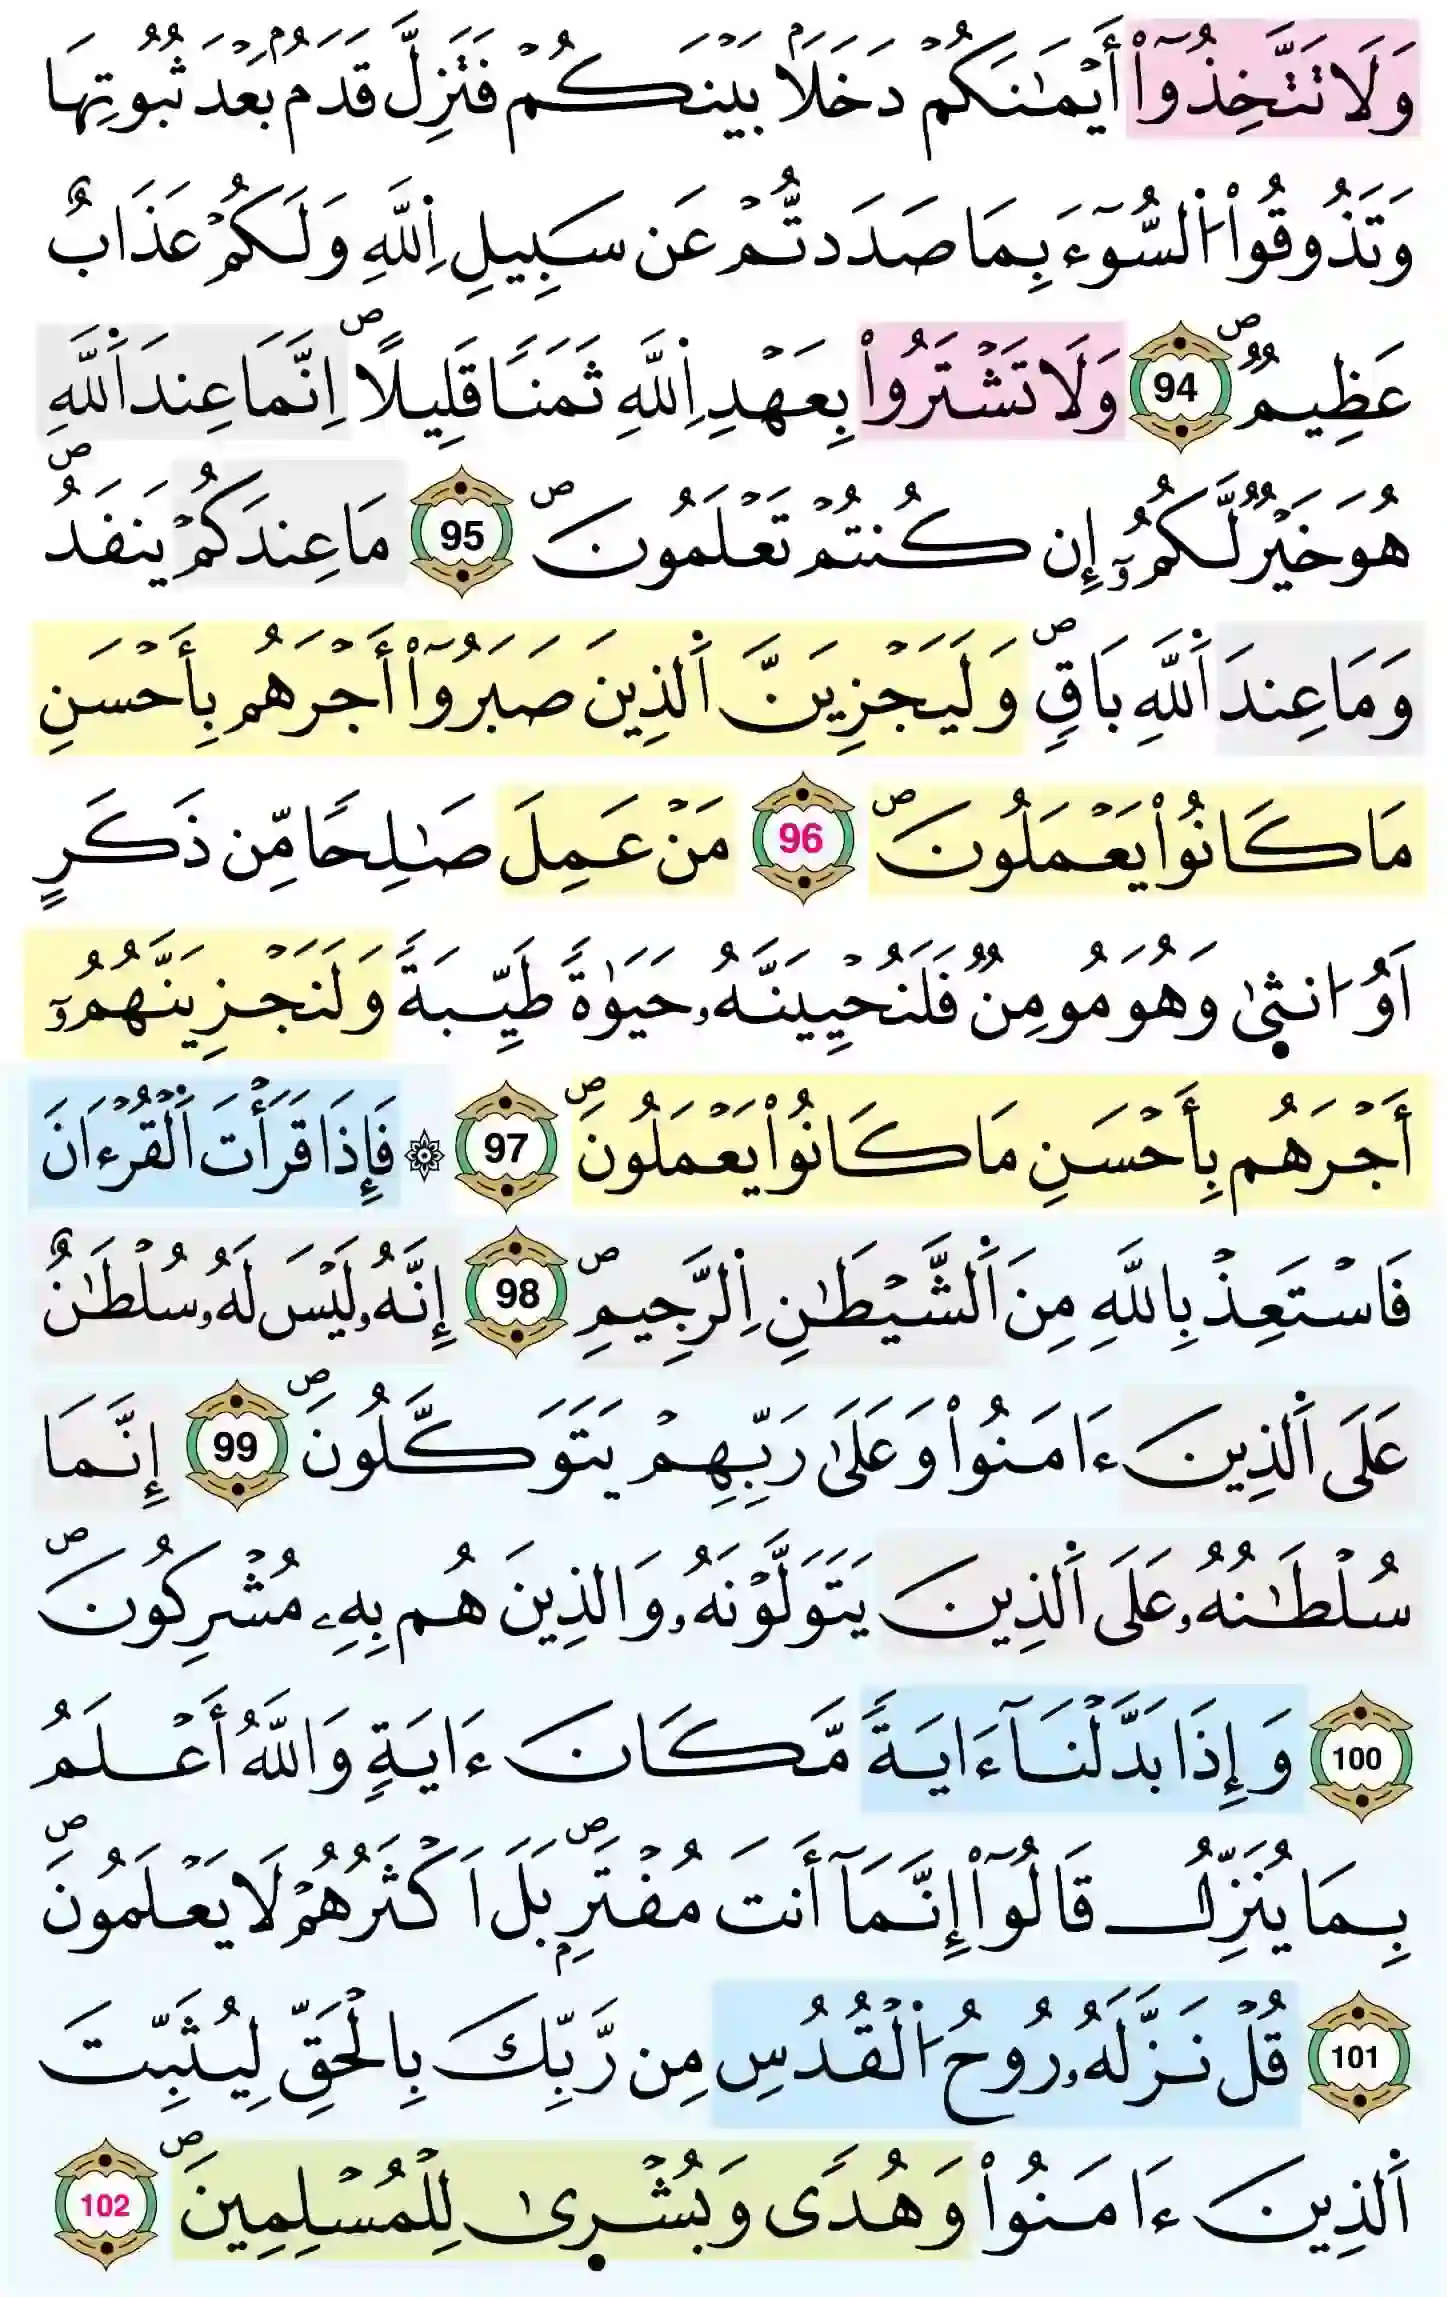 وَلَا تَتَّخِذُوٓاْ أَيْمَٰنَكُمْ دَخَلَاۢ بَيْنَكُمْ فَتَزِلَّ قَدَمُۢ بَعْدَ ثُبُوتِهَا
وَتَذُوقُواْ اُ۬لسُّوٓءَ بِمَا صَدَدتُّمْ عَن سَبِيلِ اِ۬للَّهِ وَلَكُمْ عَذَابٌ
عَظِيمٌۖ 94 وَلَا تَشْتَرُواْ بِعَهْدِ اِ۬للَّهِ ثَمَناٗ قَلِيلاًۖ اِنَّمَا عِندَ اَ۬للَّهِ
هُوَ خَيْرٞ لَّكُمُۥٓ إِن كُنتُمْ تَعْلَمُونَۖ 95 مَا عِندَكُمْ يَنفَدُۖ
وَمَا عِندَ اَ۬للَّهِ بَاقٖۖ وَلَيَجْزِيَنَّ اَ۬لذِينَ صَبَرُوٓاْ أَجْرَهُم بِأَحْسَنِ
مَا كَانُواْ يَعْمَلُونَۖ 96 مَنْ عَمِلَ صَٰلِحاٗ مِّن ذَكَرٍ
اَوُ ا۟نث۪يٰ وَهُوَ مُومِنٞ فَلَنُحْيِيَنَّهُۥ حَيَوٰةٗ طَيِّبَةٗ وَلَنَجْزِيَنَّهُمُۥٓ
أَجْرَهُم بِأَحْسَنِ مَا كَانُواْ يَعْمَلُونَۖ 97 ۞ فَإِذَا قَرَأْتَ اَ۬لْقُرْءَانَ
فَاسْتَعِذْ بِاللَّهِ مِنَ اَ۬لشَّيْطَٰنِ اِ۬لرَّجِيمِۖ 98 إِنَّهُۥ لَيْسَ لَهُۥ سُلْطَٰنٌ
عَلَى اَ۬لذِينَ ءَامَنُواْ وَعَلَىٰ رَبِّهِمْ يَتَوَكَّلُونَۖ 99 إِنَّمَا
سُلْطَٰنُهُۥ عَلَى اَ۬لذِينَ يَتَوَلَّوْنَهُۥ وَالذِينَ هُم بِهِۦ مُشْرِكُونَۖ
100 وَإِذَا بَدَّلْنَآ ءَايَةٗ مَّكَانَ ءَايَةٖ وَاللَّهُ أَعْلَمُ
بِمَا يُنَزِّلُ قَالُوٓاْ إِنَّمَآ أَنتَ مُفْتَرِۢۖ بَلَ اَكْثَرُهُمْ لَا يَعْلَمُونَۖ
101 قُلْ نَزَّلَهُۥ رُوحُ اُ۬لْقُدُسِ مِن رَّبِّكَ بِالْحَقِّ لِيُثَبِّتَ
اَ۬لذِينَ ءَامَنُواْ وَهُدٗى وَبُشْر۪يٰ لِلْمُسْلِمِينَۖ 102